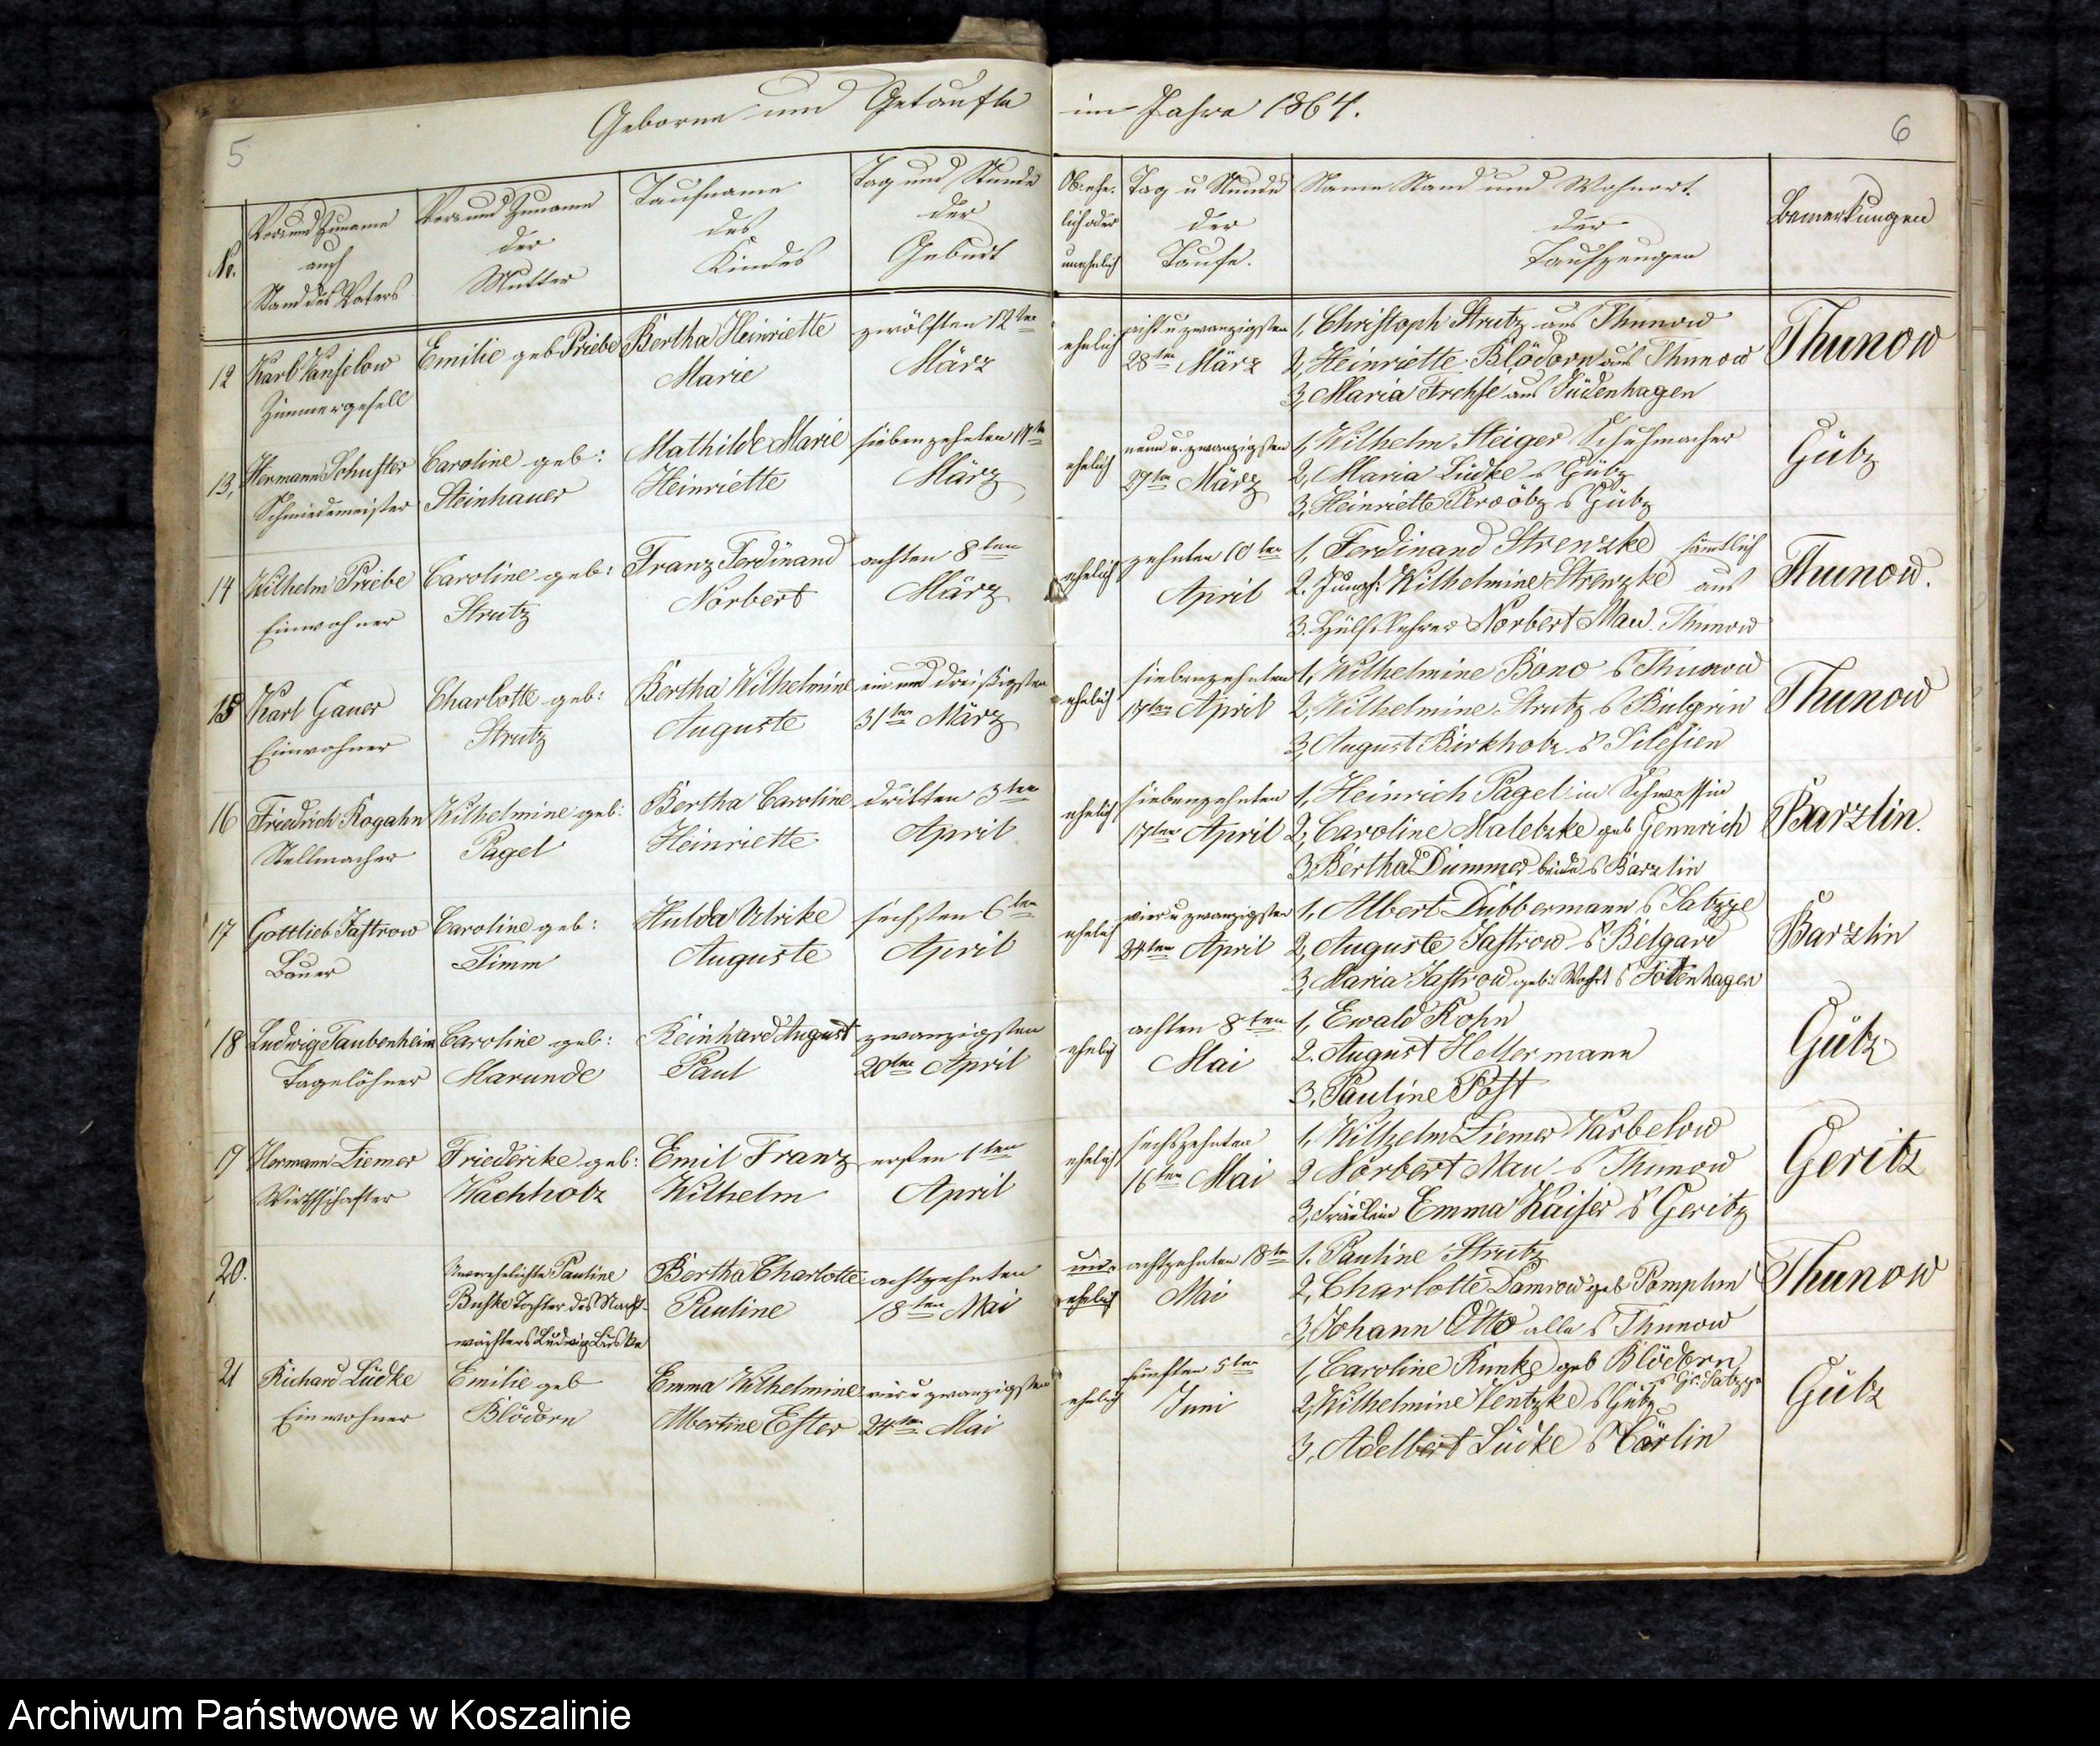 Geborne und Getaufte im Jahre 1864.
5
6
No.
Vor und Zuname
auch
Stand des Vaters
Vor und Zuname
der
Mutter
Taufname
des
Kindes
Tag und Stunde
der
Geburt
Ob ehe-
lich oder
unehelich
Tag u Stunde
der
Taufe.
Name Stand und Wohnort
der
Taufzeugen
Bemerkungen
12
Karl Vanselow
Zimmergesell
Emilie geb Priebe
Bertha Heinriette
Marie
zwölften 12ten
März
ehelich
acht u zwanzigsten
28ten März
1, Christoph Strutz aus Thunow
2, Heinriette Blödorn aus Thunow
3, Maria aus Südenhagen
Thunow
13,
Hermann Schuster
Schmiedemeister
Caroline geb:
Steinhauer
Mathilde Marie
Heinriette
siebenzehnten 17te
März
ehelich
neun u. zwanzigsten
29ten März
1, Wilhelm Steiger Schuhmacher
2, Maria Lüdke Gübz
3, Heinriette Gübz
Gübz
14
Wilhelm Priebe
Einwohner
Caroline geb:
Strutz
Franz Ferdinand
Norbert
achten 8ten
März
ehelich
zehnten 10ten
April
1, Ferdinand Strenzke sämtlich
2. Jungf: Wilhelmine Strenzke aus
3. Hülfslehrer Norbert Mau. Thunow
Thunow.
15
Karl Gauer
Einwohner
Charlotte geb:
Strutz
Bertha Wilhelmine
Auguste
ein und dreißigsten
31ten März
ehelich
siebenzehnten
17ten April
1, Wilhelmine Bono Thunow
2, Wilhelmine Strutz Bulgrin
3, August Birkholz Silesien
Thunow
16
Friedrich Rogahn
Stellmacher
Wilhelmine geb:
Pagel
Bertha Caroline
Heinriette
dritten 3ten
April
ehelich
siebenzehnten
17ten April
1, Heinrich Pagel in Schwessin
2, Caroline Maletzke geb Gennrich
3, Bertha Dummer beide Barzlin
Barzlin.
17
Gottlieb Jastrow
Bauer
Caroline geb:
Timm
Hulda Ulrike
Auguste
sechsten 6ten
April
ehelich
vier u zwanzigsten
24ten April
1, Albert Dübbermann
2, Auguste Jastrow Belgard
3, Maria Jastrow geb:
Barzlin
18
Ludwig Taubenheim
Tagelöhner
Caroline geb:
Marunde
Reinhard August
Paul
zwanzigsten
20ten April
ehelich
achten 8ten
Mai
1, Ewald Kohn
2. August Hellermann
3, Pauline Post
Gübz
19
Hermann Ziemer
Wirthschafter
Friederike geb:
Wachholz
Emil Franz
Wilhelm
ersten 1ten
April
ehelich
sechszehnten
16ten Mai
1, Wilhelm Ziemer Warbelow
2 Norbert Mau Thunow
3, Fräulein Emma Kaiser Geritz
Geritz
20.
Unverehelichte Pauline
Buske Tochter des Nacht-
wächters Ludwig Buske
Bertha Charlotte
Pauline
achtzehnten
18ten Mai
un-
ehelich
achtzehnten 18ten
Mai
1. Pauline Strutz
2, Charlotte Damrow geb Pomplun
3, Johann Otto alle Thunow
Thunow
21
Richard Lüdke
Einwohner
Emilie geb
Blödorn
Emma Wilhelmine
Albertine Ester
vier u zwanzigsten
24ten Mai
ehelich
fünften 5ten
Juni
1, Caroline Runke geb Blödorn
2, Wilhelmine Ventzke Gübz
3, Adelbert Lüdke Cörlin
Gübz
Archiwum Państwowe w Koszalinie